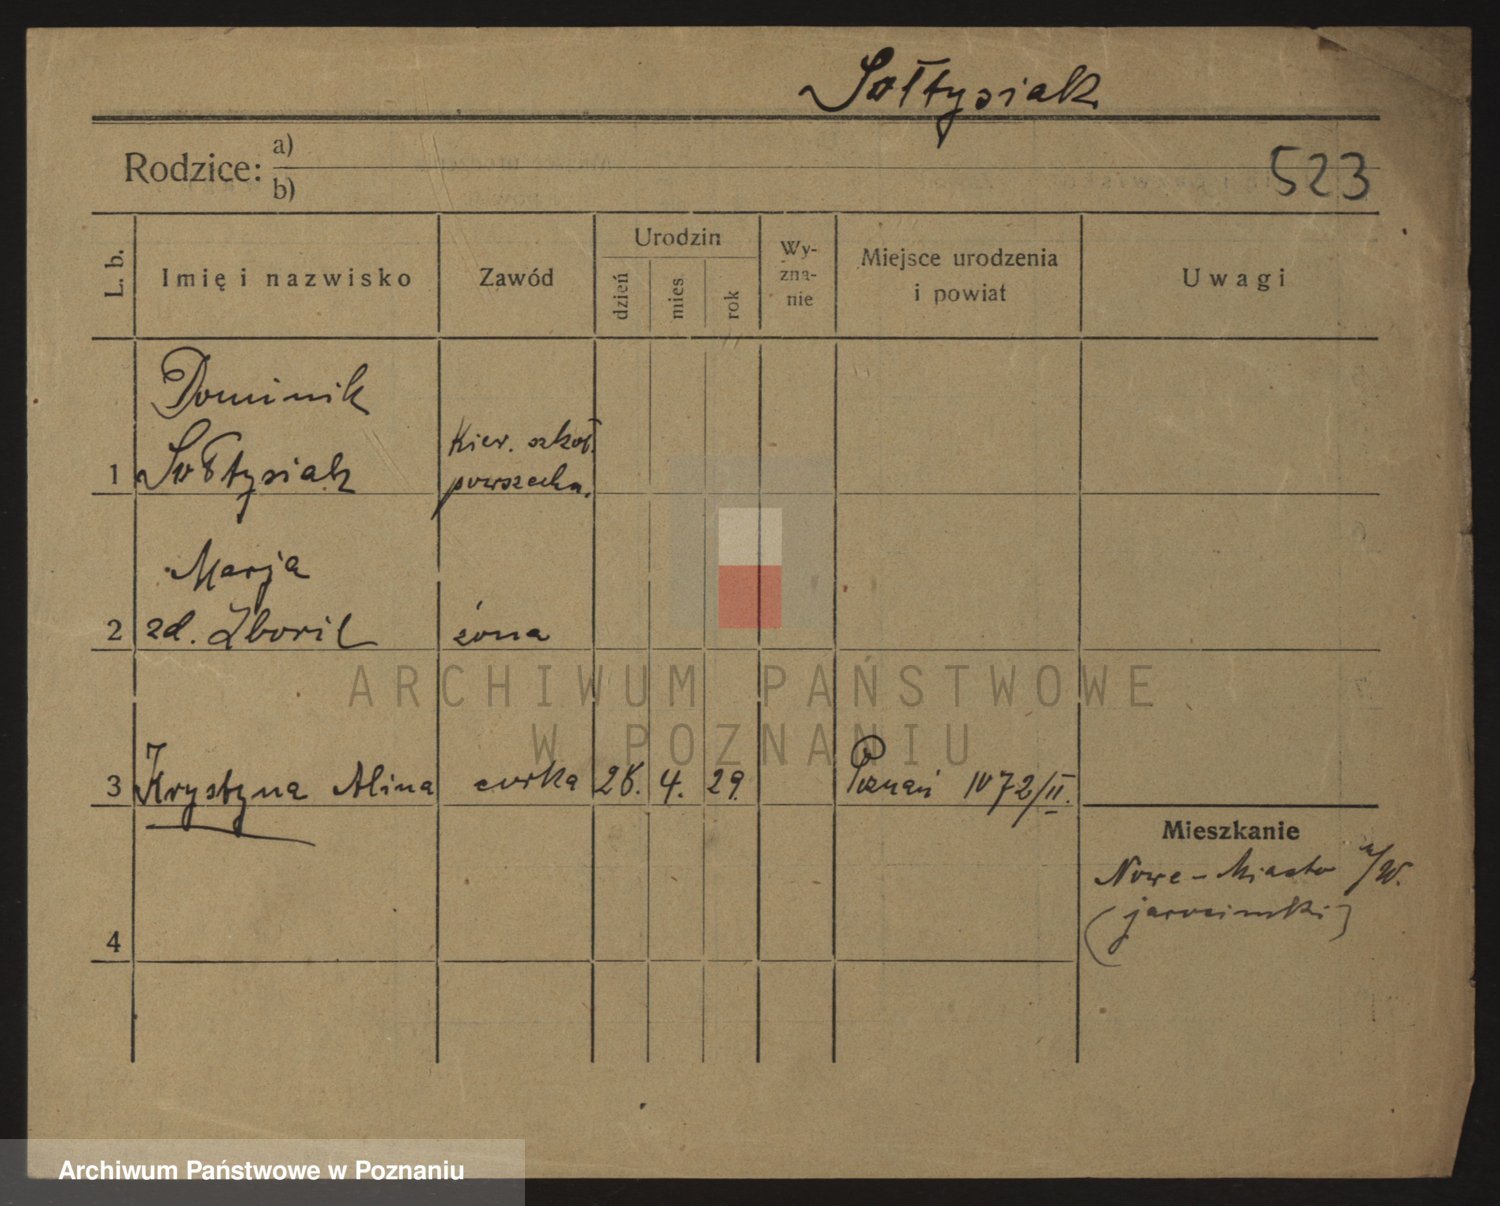 Sołtysiak
Rodzice: a)
b)
523
L. b.
Imię i nazwisko
Zawód
Urodzin
dzień
mies
rok
Wy-
zna-
nie
Miejsce urodzenia
i powiat
Uwagi
Dominik
1 Sołtysiak
Kier. szkoł.
powszechn.
Marja
2 zd. Zboril żona
3 Krystyna Alina curka 28. 4. 29. Poznań 1072/II.
Mieszkanie
Nowe-Miasto n/W.
(jarociński)
4
ARCHIWUM PAŃSTWOWE
W POZNANIU
Archiwum Państwowe w Poznaniu